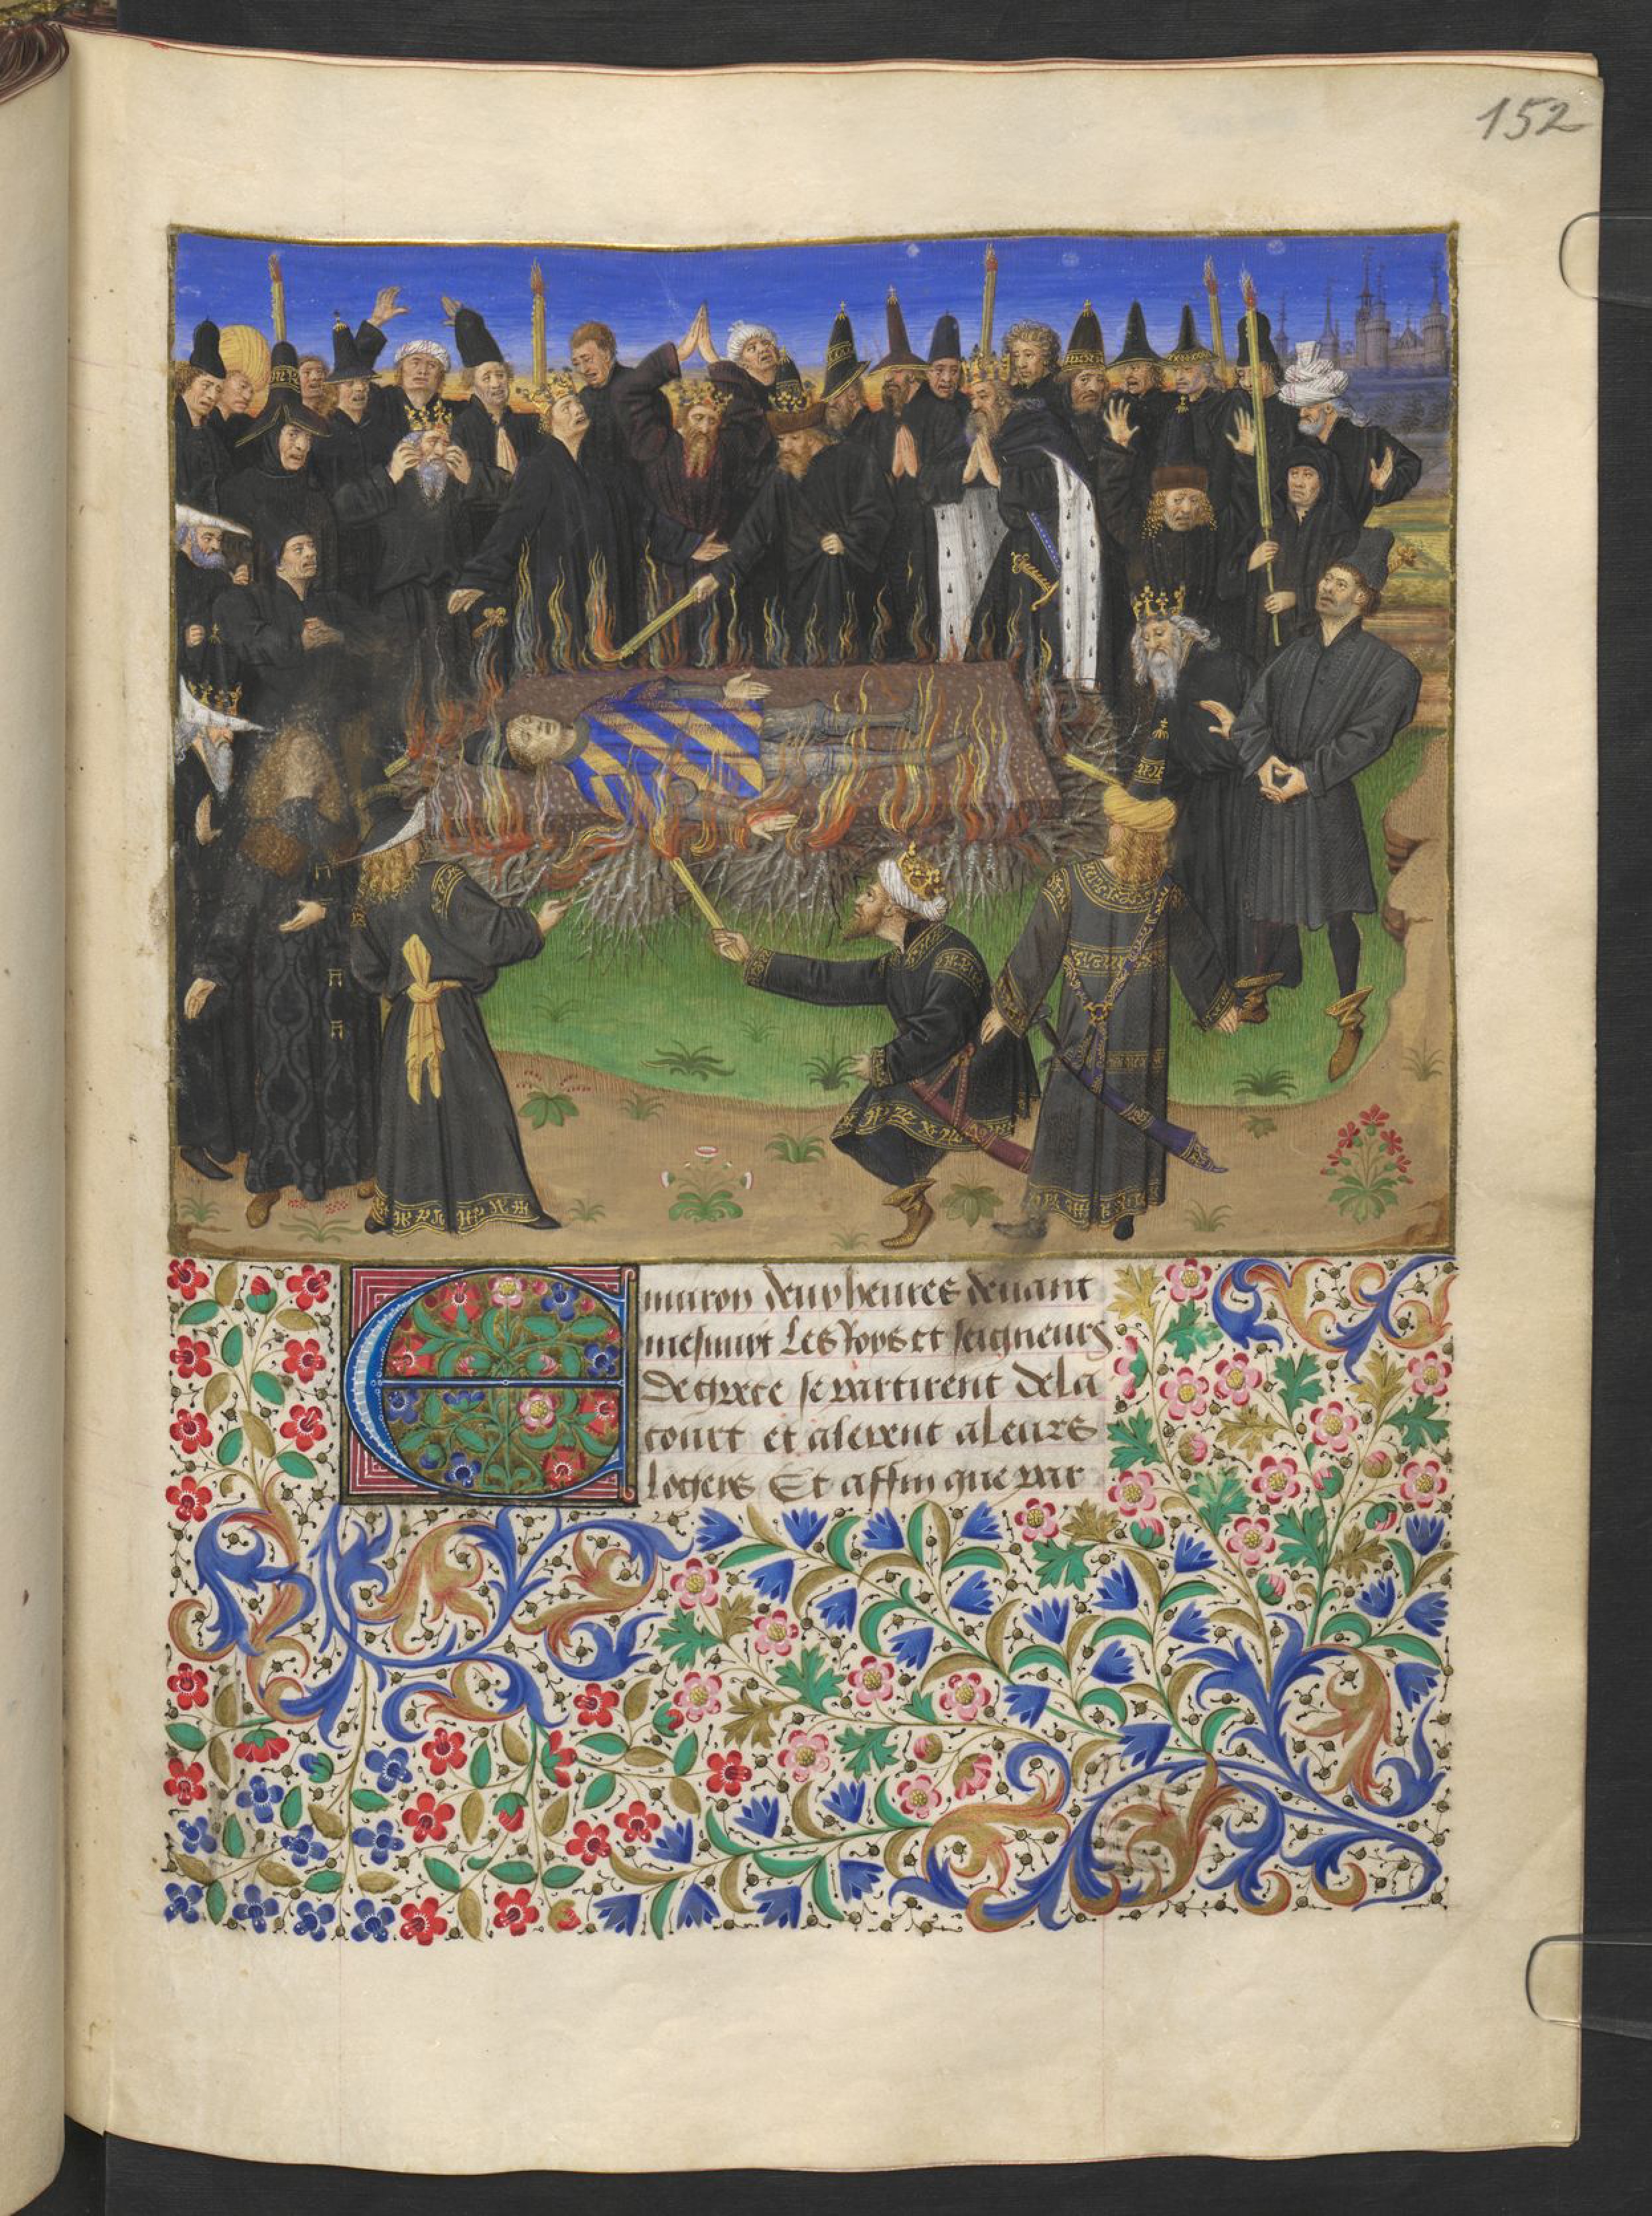 152
Enuiron deux heures deuant
mesnuyt Les Roys et seigneurs
De grece se partirent de la
court et alerent a leurs
logeis Et affin que par